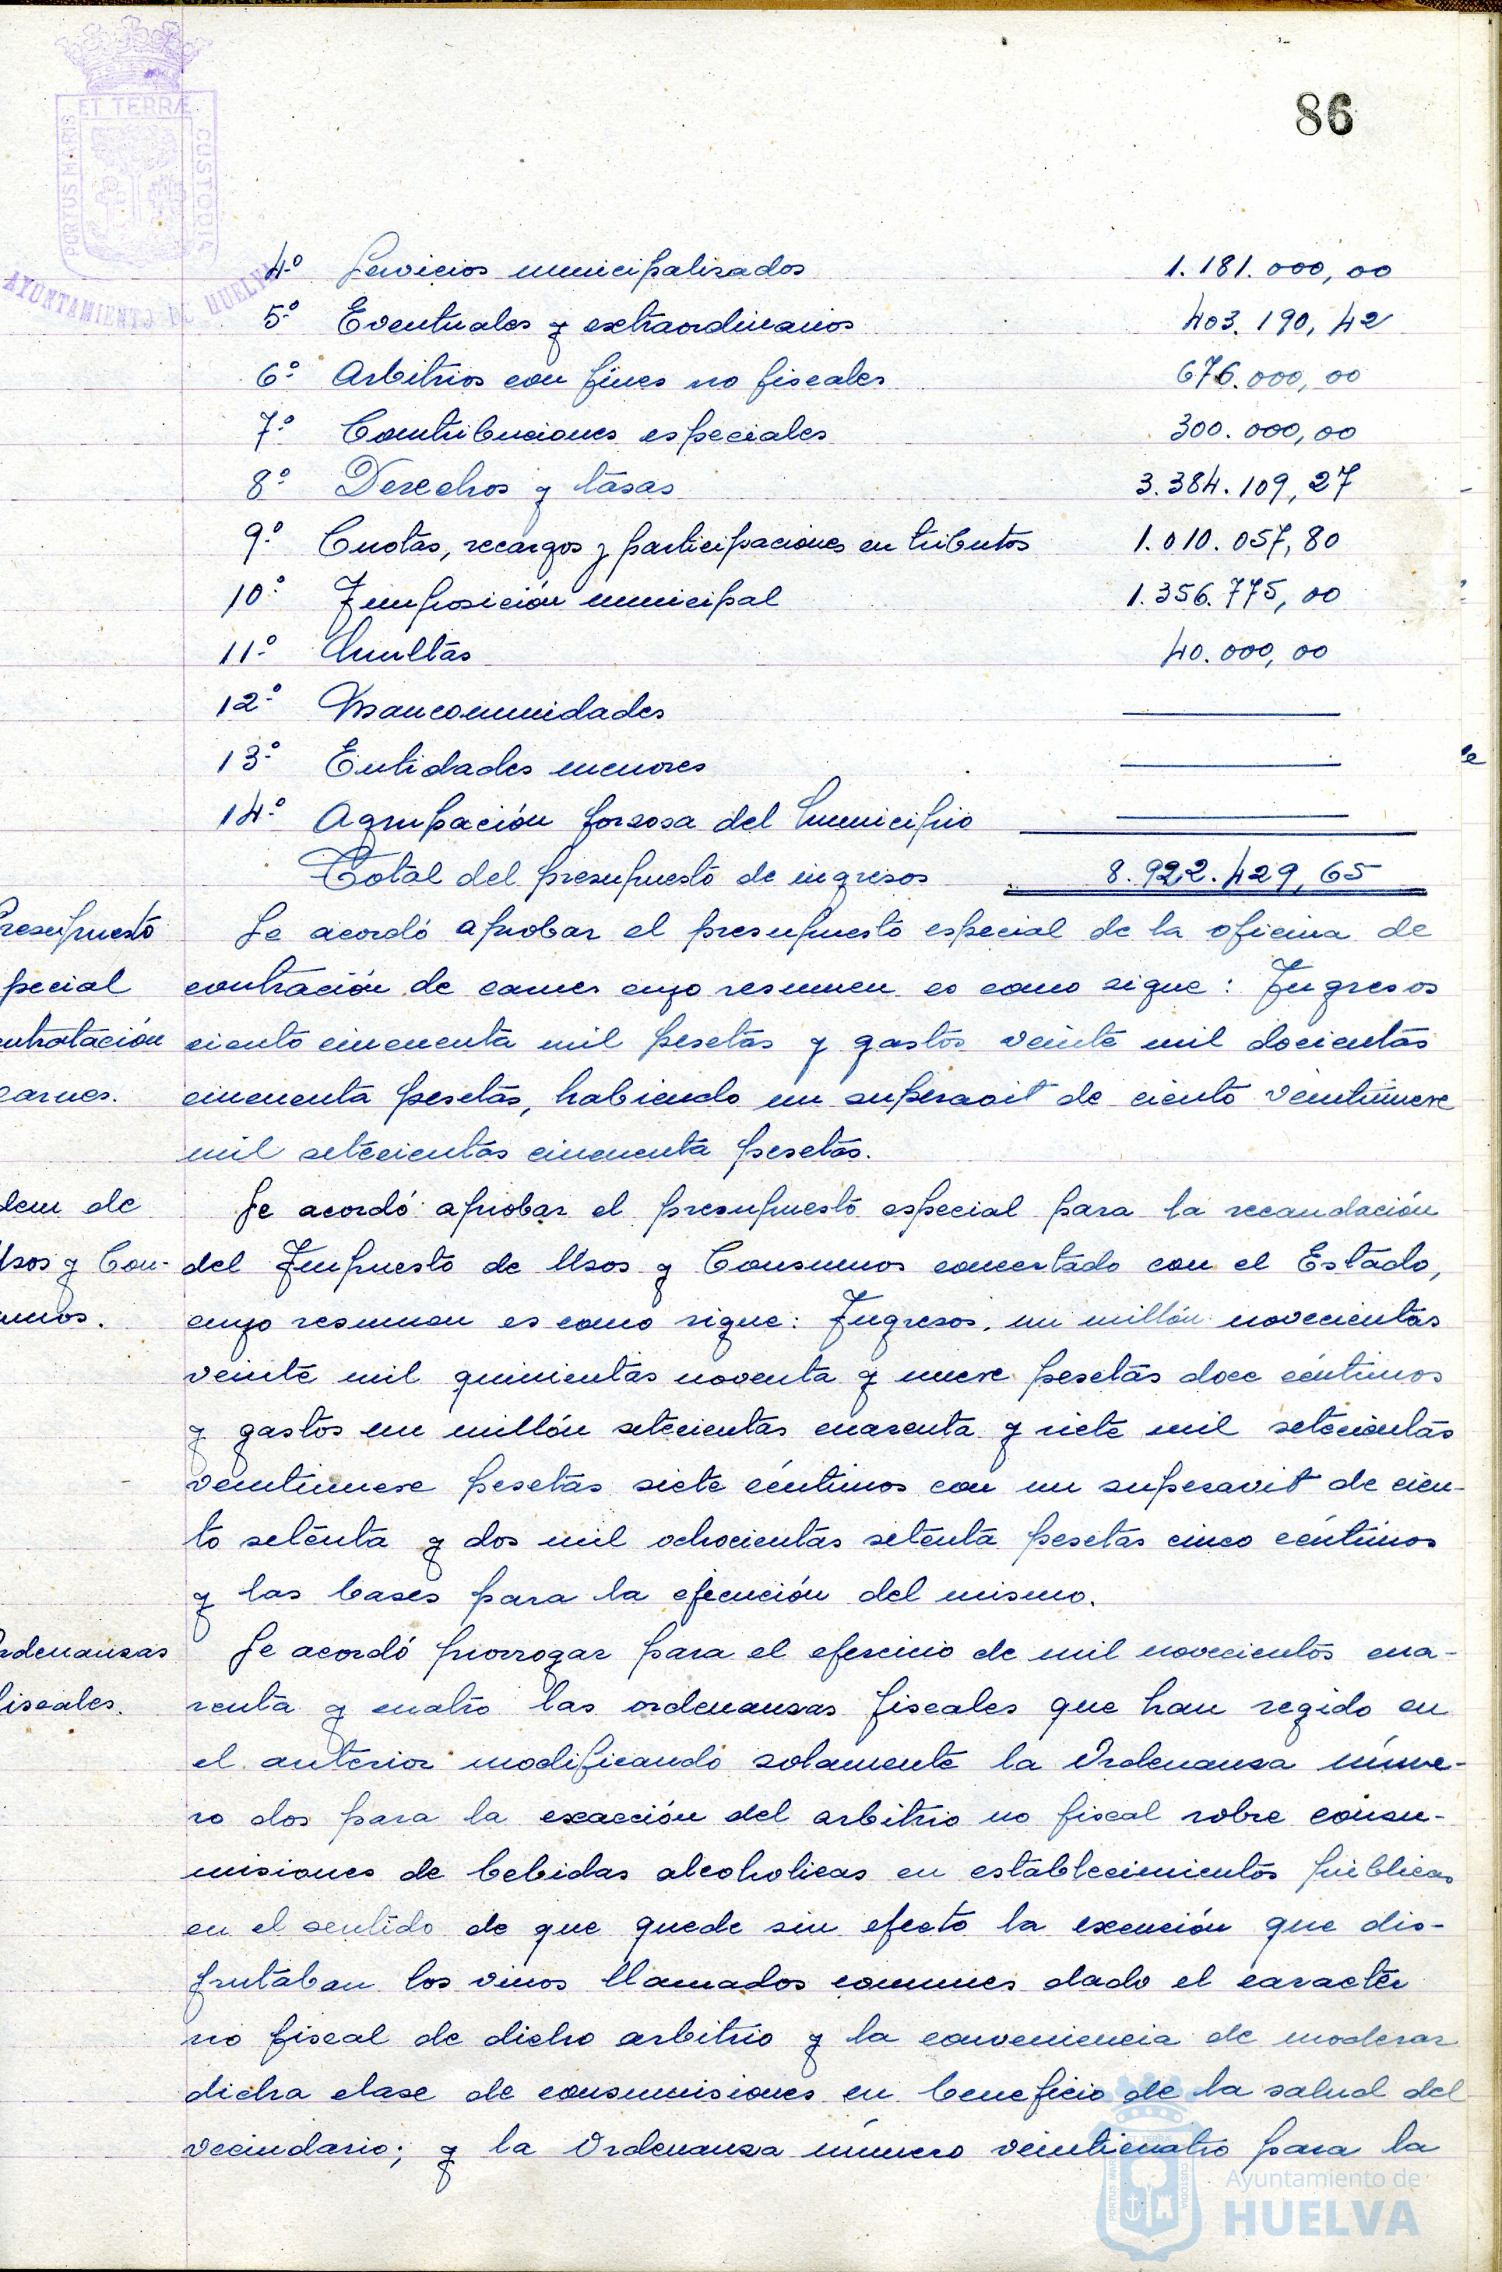 86
ET TERRÆ
PORTUS MARIS
CUSTODIA
AYUNTAMIENTO DE HUELVA
4º Servicios municipalizados 1.181.000,00
5º Eventuales y extraordinarios 403.190,42
6º Arbitrios con fines no fiscales 676.000,00
7º Contribuciones especiales 300.000,00
8º Derechos y tasas 3.384.109,27
9º Cuotas, recargos y participaciones en tributos 1.010.057,80
10º Imposición municipal 1.356.775,00
11º Multas 40.000,00
12º Mancomunidades
13º Entidades menores
14º Agrupación forzosa del Municipio
Total del presupuesto de ingresos 8.922.429,65
resupuesto
pecial
ntratación
carnes.
Se acordó aprobar el presupuesto especial de la oficina de
contración de carnes cuyo resumen es como sigue: Ingresos
ciento cincuenta mil pesetas y gastos veinte mil docientas
cincuenta pesetas, habiendo un superavit de ciento veintinueve
mil setecientas cincuenta pesetas.
dem de
Usos y Con-
umos.
Se acordó aprobar el presupuesto especial para la recaudación
del Impuesto de Usos y Consumos concertado con el Estado,
cuyo resumen es como sigue: Ingresos, un millón novecientas
veinte mil quinientas noventa y nueve pesetas doce céntimos
y gastos un millón setecientas cuarenta y siete mil setecientas
veintinueve pesetas siete céntimos con un superavit de cien-
to setenta y dos mil ochocientas setenta pesetas cinco céntimos
y las bases para la ejecución del mismo.
rdenanzas
iscales.
Se acordó prorrogar para el ejercicio de mil novecientos cua-
renta y cuatro las ordenanzas fiscales que han regido en
el anterior modificando solamente la Ordenanza núme-
ro dos para la exacción del arbitrio no fiscal sobre consu-
misiones de bebidas alcoholicas en establecimientos públicos
en el sentido de que quede sin efecto la exención que dis-
frutaban los vinos llamados comunes dado el caracter
no fiscal de dicho arbitrio y la conveniencia de moderar
dicha clase de consumisiones en beneficio de la salud del
vecindario; y la Ordenanza número veinticuatro para la
Ayuntamiento de
HUELVA